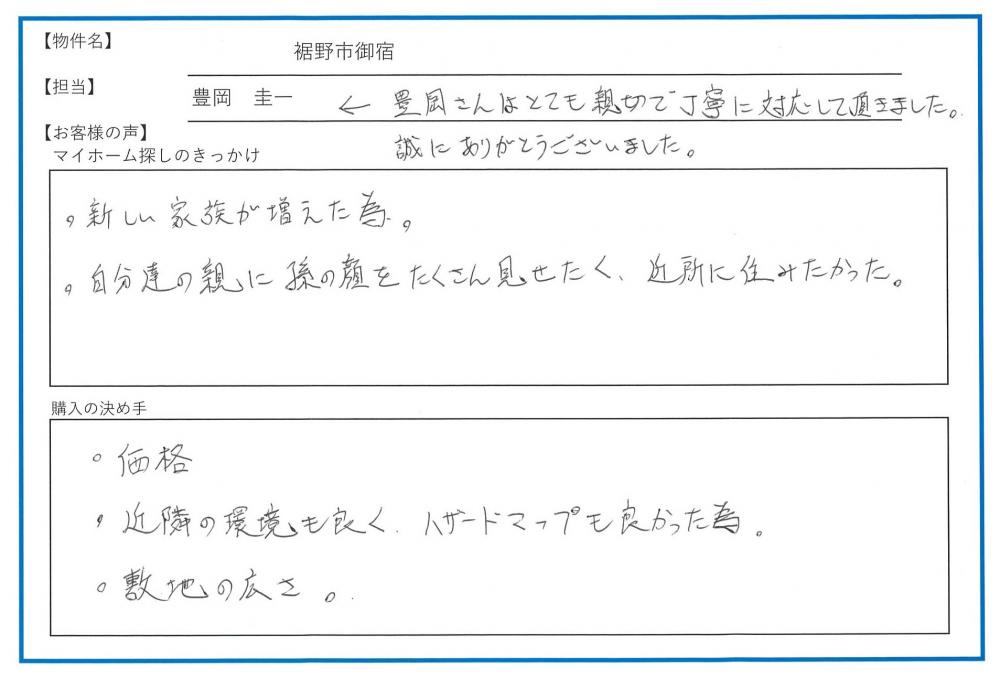 【物件名】
裾野市御宿
【担当】
豊岡 圭一 ← 豊岡さんはとても親切で丁寧に対応して頂きました。
【お客様の声】
誠にありがとうございました。
マイホーム探しのきっかけ
。新しい家族が増えた為。
。自分達の親に孫の顔をたくさん見せたく、近所に住みたかった。
購入の決め手
。価格
。近隣の環境も良く、ハザードマップも良かった為。
。敷地の広さ。